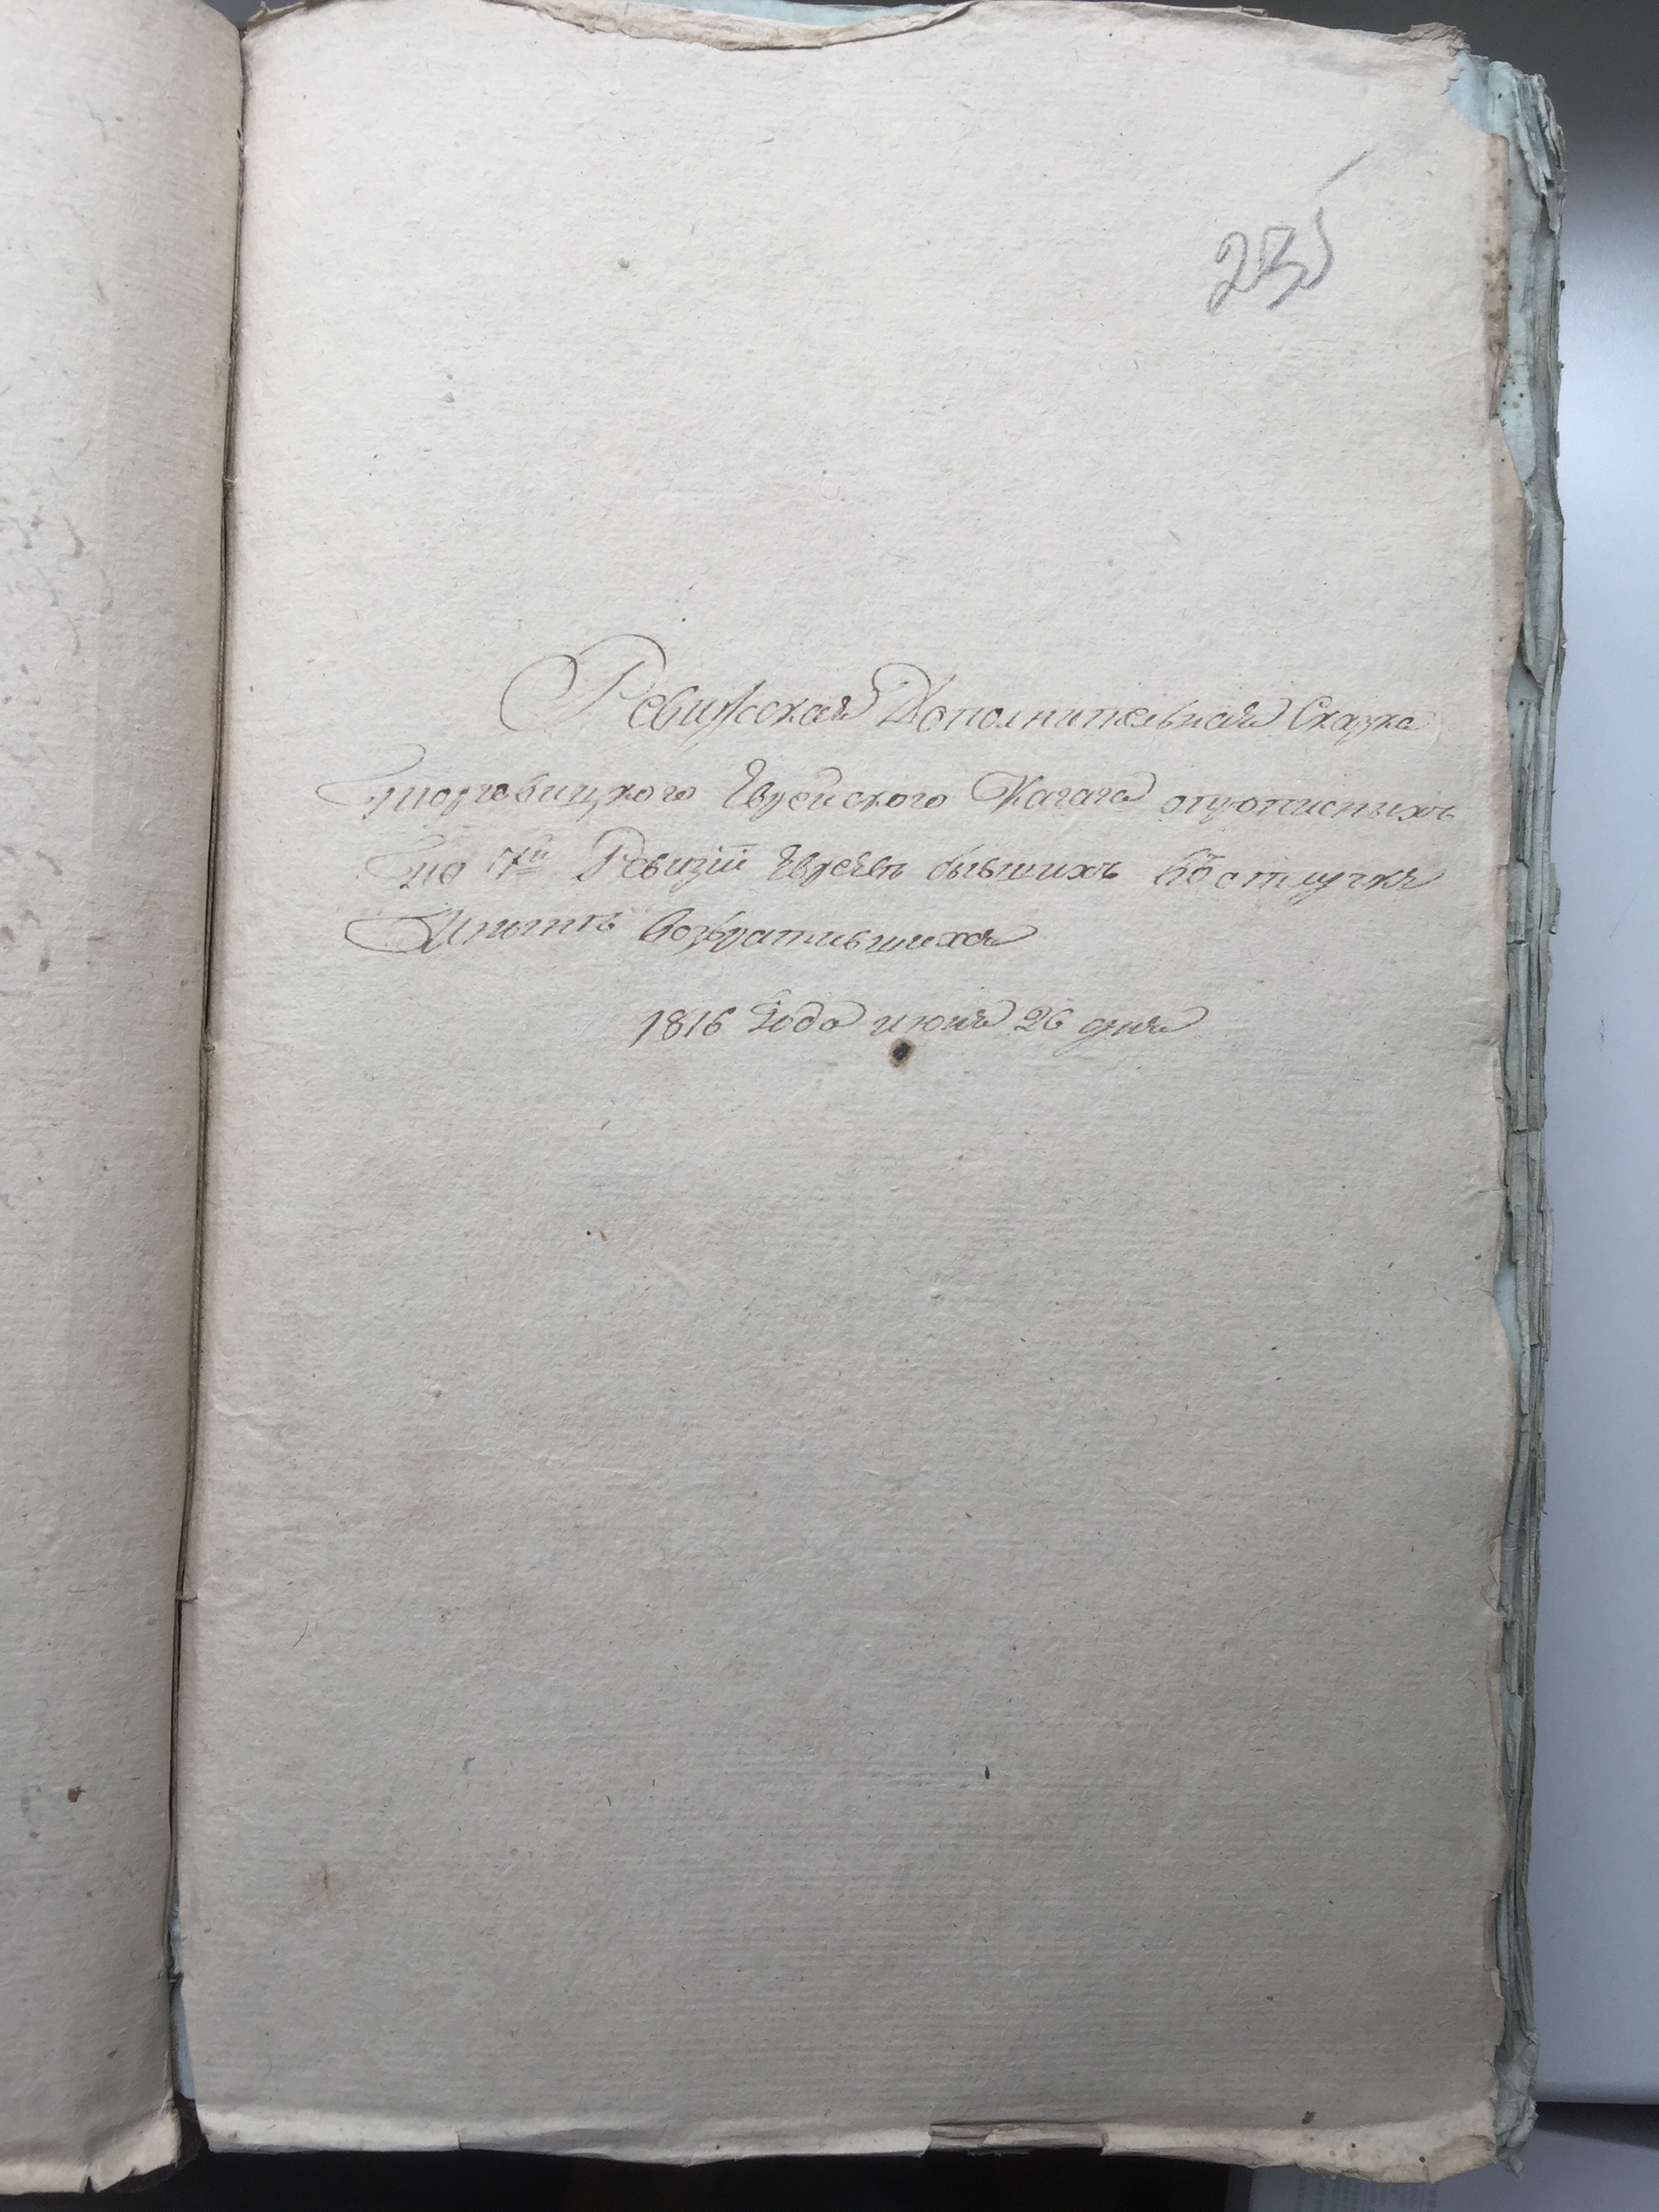 235
Ревижская Дополнительная Сказка
Торговицкого Еврейского Кагала опрописныхъ
по 7й Ревизіи Евреевъ бывшихъ въ отлучке
Иныне возвратившихся
1816 Года июня 26 дня